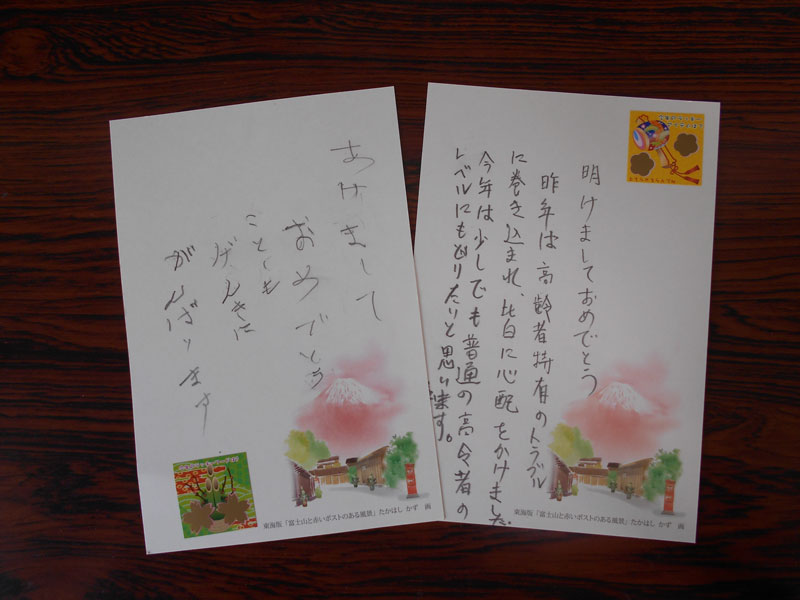 あけまして
おめでとう
ことしも
げんきに
がんばります
東海版「富士山と赤いポストのある風景」たかはし かず 画
明けましておめでとう
昨年は高齢者特有のトラブル
に巻き込まれ、皆に心配をかけました。
今年は少しでも普通の高令者の
レベルにもどりたいと思います。
東海版「富士山と赤いポストのある風景」たかはし かず 画